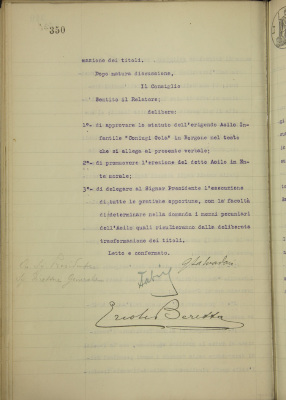 350
mazione dei titoli.
Dopo matura discussione,
Il Consiglio
Sentito il Relatore;
delibera:
1°- di approvare lo statuto dell'erigendo Asilo In-
fantile "Coniugi Sola" in Bergoro nel testo
che si allega al presente verbale;
2°- di promuovere l'erezione del detto Asilo in En-
te morale;
3°- di delegare al Signor Presidente l'esecuzione
di tutte le pratiche opportune, con la facoltà
di determinare nella domanda i mezzi pecuniari
dell'Asilo quali risulteranno dalla deliberata
trasformazione dei titoli.
Letto e confermato.
Beretta